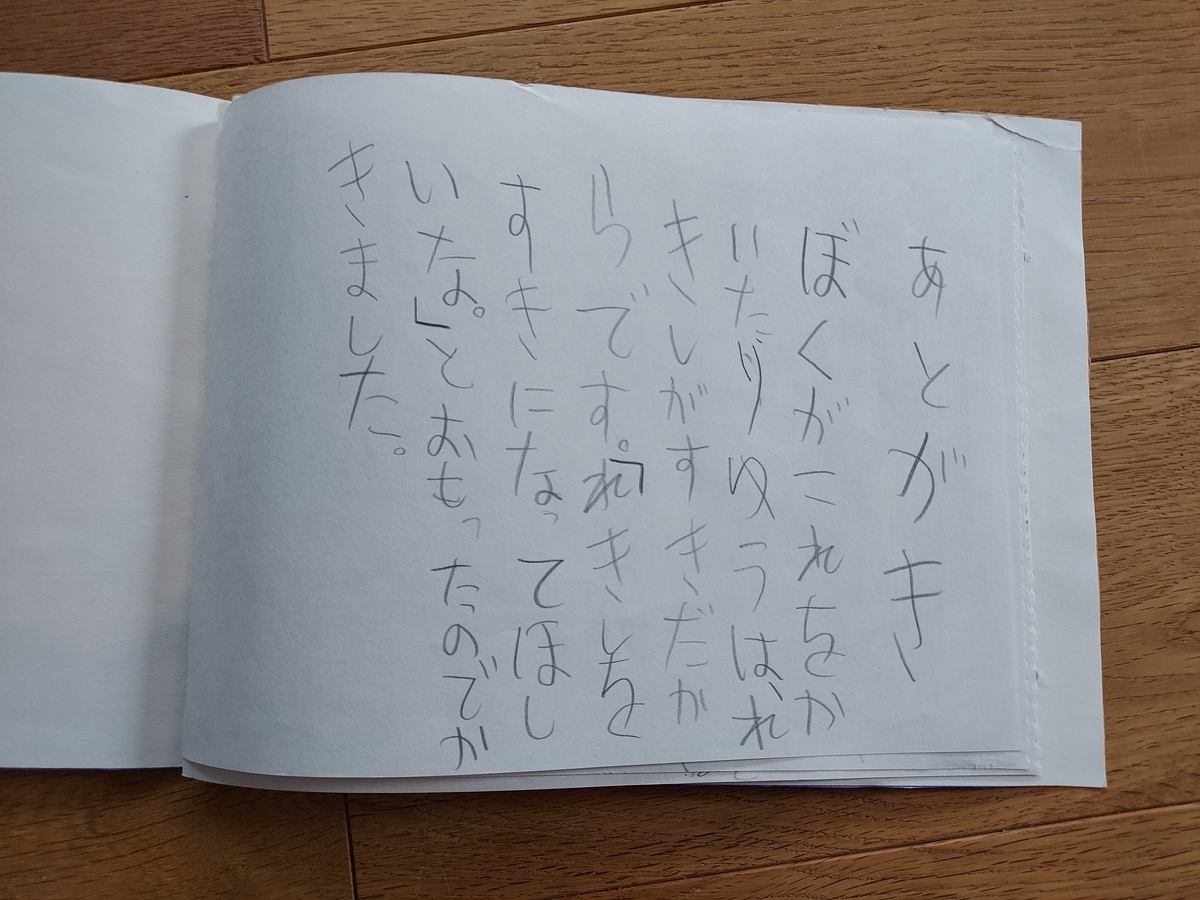 あとがき
ぼくがこれをか
いたりゆうは、れ
きしがすきだか
らです。「れきしを
すきになってほし
いなぁ。」とおもったのでか
きました。